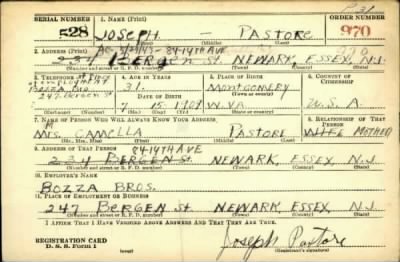 SERIAL NUMBER 1. NAME (Print) ORDER NUMBER
528 JOSEPH — PASTORE 970
(First) (Middle) (Last)
2. ADDRESS (Print) 84-14TH AVE
234 BERGEN St. NEWARK, ESSEX, N.J.
(Number and street or R. F. D. number) (Town) (County) (State)
3. TELEPHONE 4. AGE IN YEARS 5. PLACE OF BIRTH 6. COUNTRY OF CITIZENSHIP
BOZZA BRO 31. MONTGOMERY
247 Bergen St DATE OF BIRTH (Town or county)
7 15 1909 W.VA U.S.A.
(Mo.) (Day) (Yr.) (State or country)
7. NAME OF PERSON WHO WILL ALWAYS KNOW YOUR ADDRESS 8. RELATIONSHIP OF THAT PERSON
MRS. CAMELLA PASTORE WIFE MOTHER
(Mr., Mrs., Miss) (First) (Middle) (Last)
9. ADDRESS OF THAT PERSON 84-14TH AVE
234 BERGEN St. NEWARK, ESSEX, N.J.
(Number and street or R. F. D. number) (Town) (County) (State)
10. EMPLOYER'S NAME
BOZZA BROS.
11. PLACE OF EMPLOYMENT OR BUSINESS
247 BERGEN St. NEWARK, ESSEX, N.J.
(Number and street or R. F. D. number) (Town) (County) (State)
I AFFIRM THAT I HAVE VERIFIED ABOVE ANSWERS AND THAT THEY ARE TRUE.
REGISTRATION CARD
D. S. S. FORM 1
Joseph Pastore
(Registrant's signature)